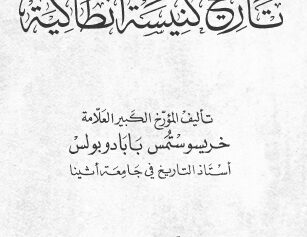 تاريخ كنيسة أنطاكية
تأليف المؤرخ الكبير العلّامة
خريسوستمُس بَابَادوبولس
أستاذ التاريخ في جَامِعَة أثينا